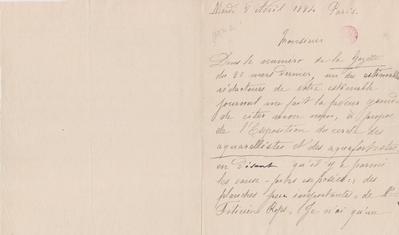 Mardi 8 Avril 1884 Paris.
Monsieur
Dans le numero de la Gazette
du 23 mars dernier, un des estimables
rédacteurs de votre estimable
journal me fait la faveur grande
de citer mon nom, à propos
de l'Exposition du cercle des
aquarellistes et des aquafortistes
en disant qu'il y a parmi
les eaux-fortes exposées, des
planches peu importantes, de Mr
Félicien Rops. Je n'ai qu'un